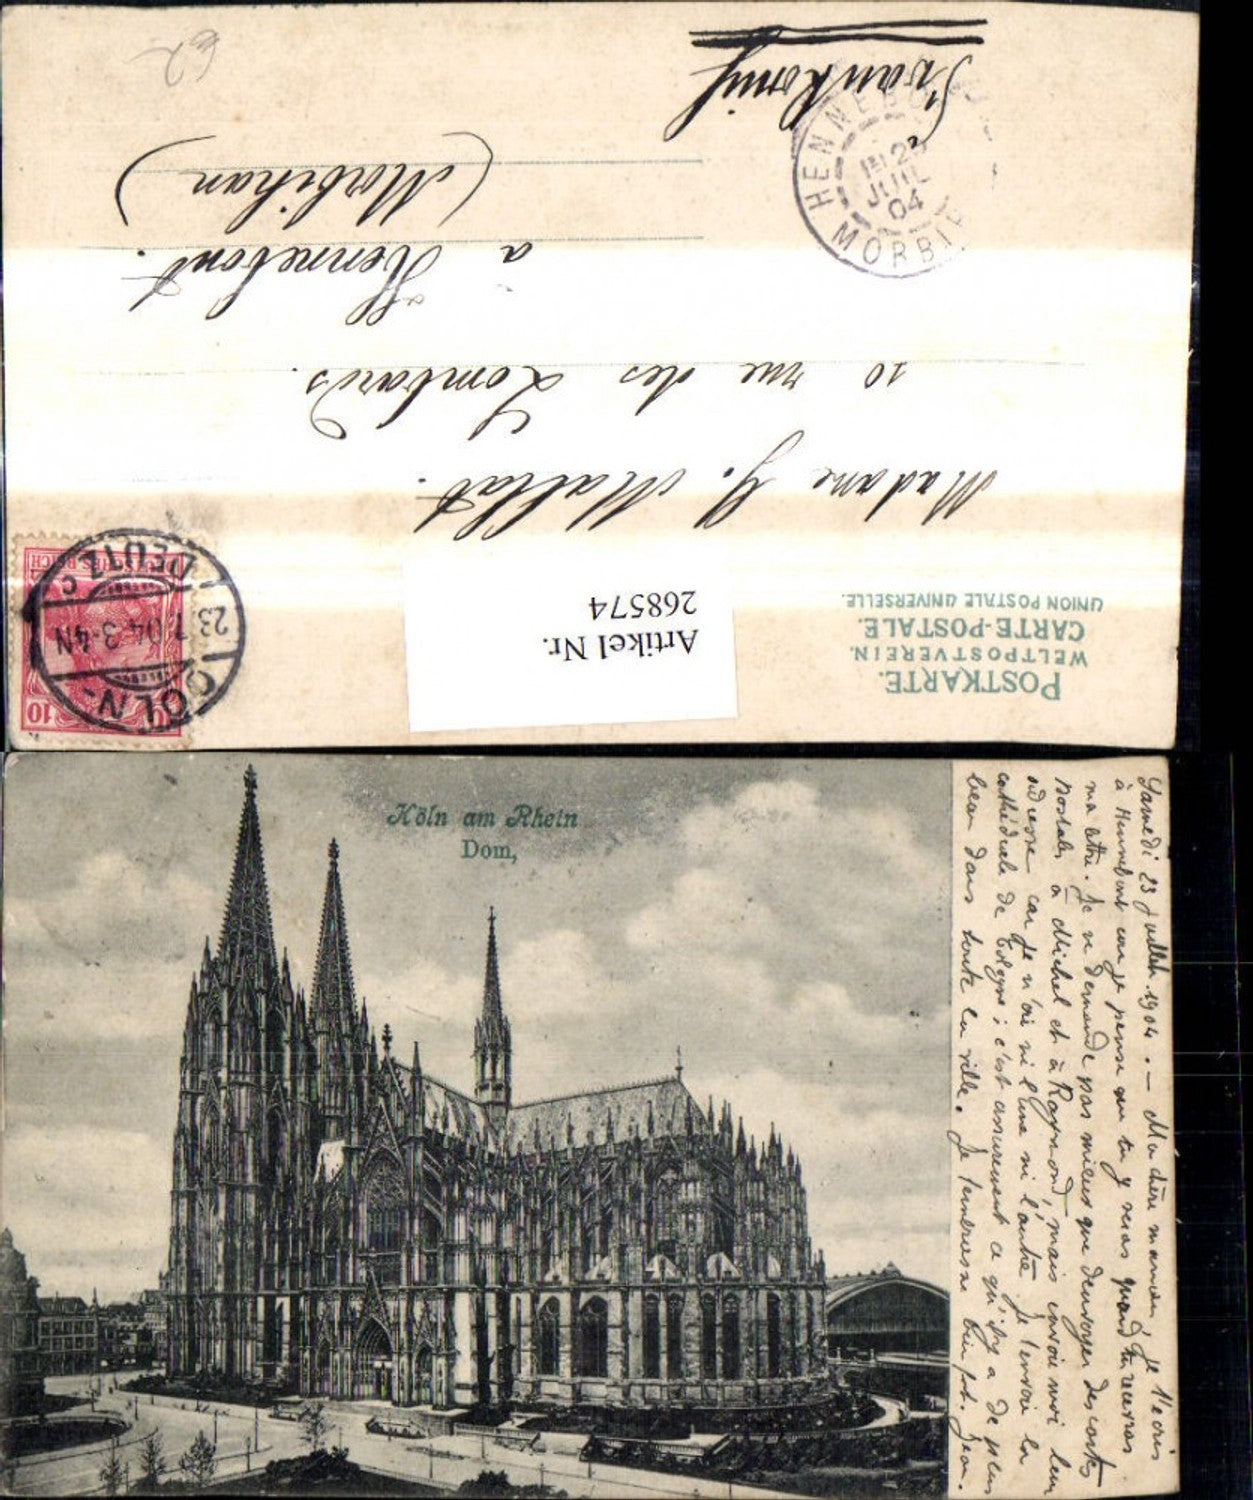 POSTKARTE.
WELTPOSTVEREIN.
CARTE-POSTALE.
UNION POSTALE UNIVERSELLE.
Artikel Nr.
268574
DEUTSCHES REICH
10
CÖLN-
23.7.04.3-4N
DEUTZ
C
Madame G. Mallat.
10 rue des Lombards.
à Hennebont.
(Morbihan)
Frankreich
HENNEBO
JUIL
04
MORBI
62
Köln am Rhein
Dom,
Samedi 23 juillet 1904. — Ma chère maman, Je t'écris
à Hennebont car je pense que tu y seras quand tu recevras
ma lettre. Je ne demande pas mieux que d'envoyer des cartes
postales à Michel et à Raymond, mais envoie moi leur
adresse car je n'ai ni l'une ni l'autre. Je t'envoie la
cathédrale de Cologne ; c'est assurément ce qu'il y a de plus
beau dans toute la ville. Je t'embrasse bien fort. Jean.